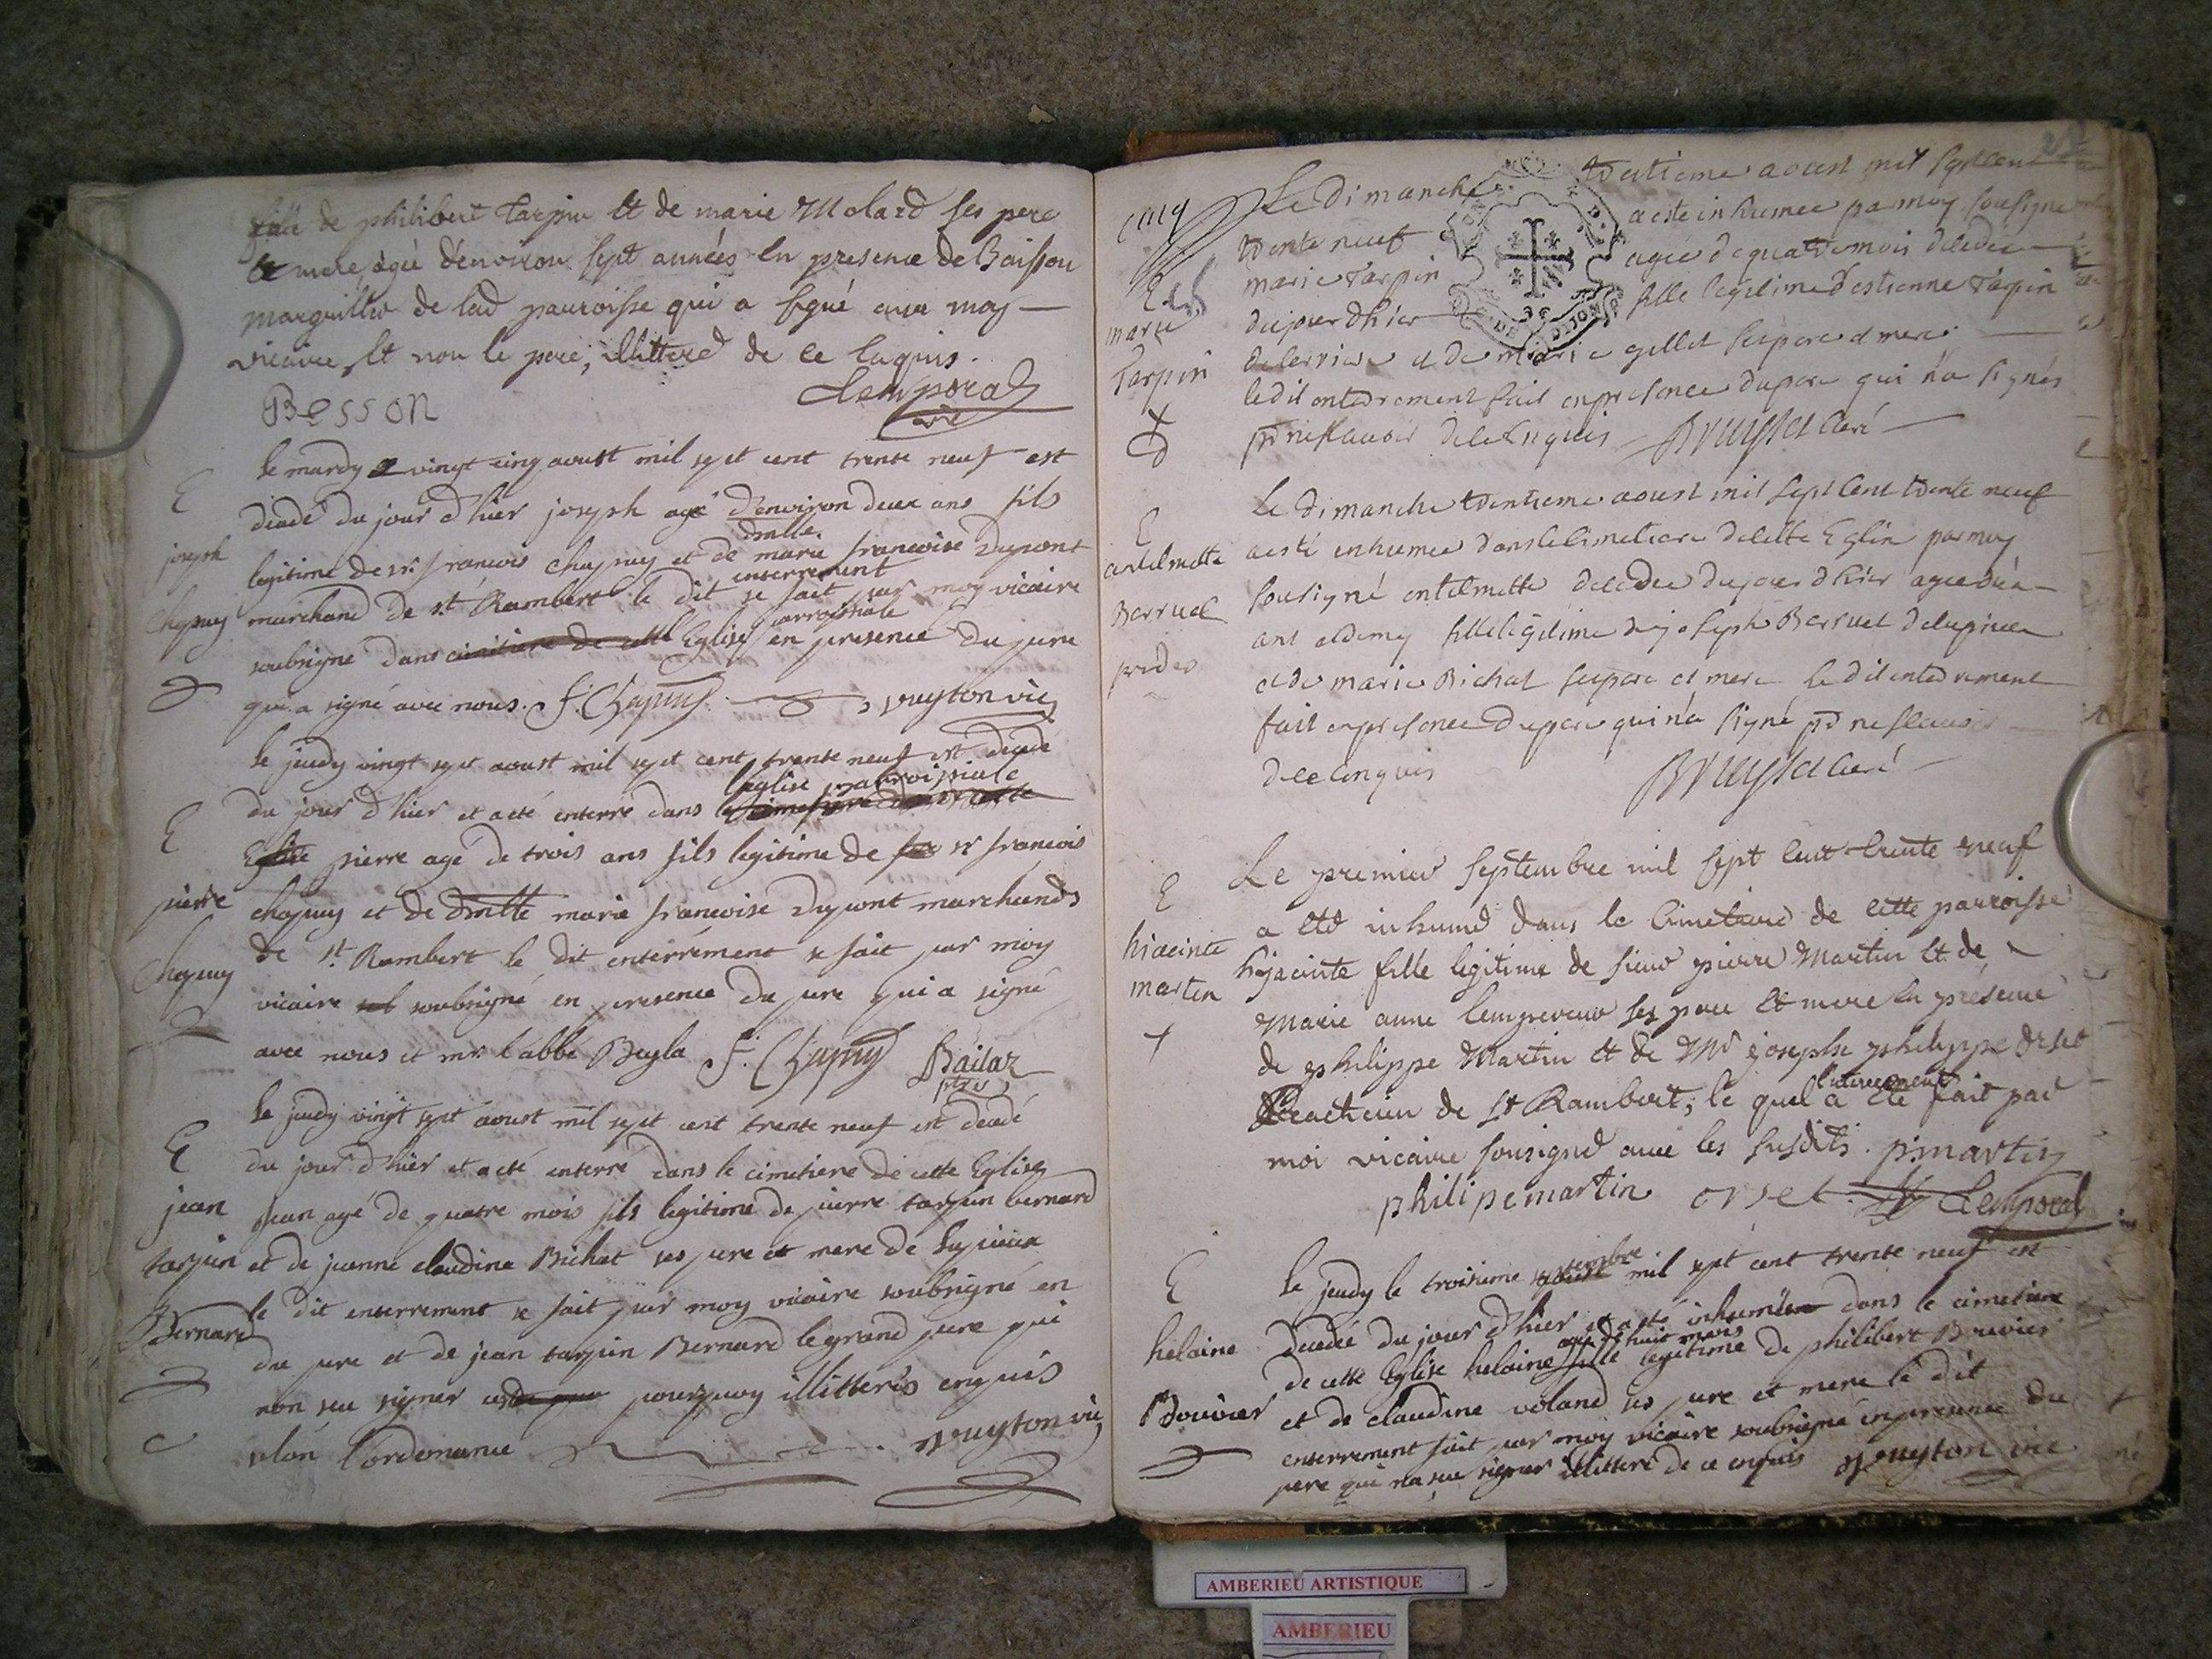 fille de philibert Tarpin Et de marie Molard ses pere
Et mere, agée d'environ sept années En presence de Baisson
marguillier de lad parroisse qui a signé avec moy
vicaire, Et non le pere, illitteré de ce Enquis.
Besson Temporal
vic
E
le mardy vingt cinq aoust mil sept cent trente neuf est
decedé du jour d'hier joseph agé d'environ deux ans fils
joseph
dmlle
legitime de sr. francois chapuy et de marie francoise Dupont
chapuy
enterrement
marchand de st Rambert le dit se fait par moy vicaire
parroissiale
soubsigné dans cimitiere de cette Eglise en presence du pere
qui a signé avec nous. f. Chapuy vuyton vic
le jeudy vingt sept aoust mil sept cent trente neuf est decedé
l'eglise parroissiale
E
du jour d'hier et a eté enterré dans le cimetiere de cette
Eglise pierre agé de trois ans fils legitime de sr francois
pierre
chapuy et de dmlle marie francoise Dupont marchands
chapuy
de st. Rambert le dit enterrément se fait par moy
vicaire soubsigné en presence du pere qui a signé
avec nous et mr. l'abbé Beyla f. Chapuy Bailaz
ptre
le jeudy vingt sept aoust mil sept cent trente neuf est decedé
E
du jour d'hier et a eté enterré dans le cimetiere de cette Eglise
jean
jean agé de quatre mois fils legitime de pierre tarpin bernard
tarpin
et de jeanne claudine Bichat ses pere et mere de
Bernard
le dit enterrement se fait par moy vicaire soubsigné en
du pere et de jean tarpin Bernard le grand pere qui
non seu signer pourquoy illitterés enquis
selon l'ordonnance vuyton vic
cinq
Le dimanche trentieme aoust mil sept cent
trente neuf a esté inhumée par moy sousigné
E
marie Tarpin agée de quatre mois decedée
marie
du jour d'hier fille legitime d'estienne Tarpin
Tarpin
et de marie gellet ses pere et mere
ledit enterrement fait en presence du pere qui n'a signés
pr ne scavoir de ce Enquis Bruysset Curé
DE DIJON
Le dimanche trentieme aoust mil sept Cent trente neuf
E
antelmette
a esté inhumée dans le Cimetiere de cette Eglise par moy
sousigné antelmette decedée du jour d'hier agée d'un
Berruel
ans et demy fille legitime de joseph Berruel
et de marie Bichat ses pere et mere le dit enterrement
fait en presence du pere qui n'a signé pr ne scavoir
de ce Enquis Bruysset Curé
Le premier septembre mil sept cent trente neuf
E
a eté inhumé dans le Cimetiere de cette parroisse
hiacinte
hyacinte fille legitime de sieur pierre Martin Et de
martin
Marie anne Lempereur ses pere Et mere En presence
de philippe Martin Et de Mr joseph philippe Orset
l'enterrement
de St Rambert; le quel a eté fait par
moi vicaire sousigné avec les susdits. p. martin
philipe martin orset Temporal
septembre
E
le jeudy le troisieme aoust mil sept cent trente neuf est
helaine
decedée du jour d'hier et a eté inhumée dans le cimetiere
agée de huit mois
de cette Eglise helaine fille legitime de philibert Bouvier
Bouvier
et de claudine voland ses pere et mere le dit
enterrement fait par moy vicaire soubsigné en presence du
pere qui na seu signer illitteré de ce enquis vuyton vic
AMBERIEU ARTISTIQUE
AMBERIEU